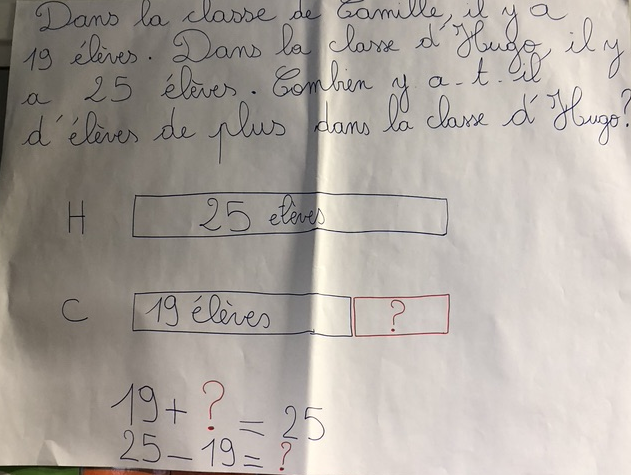 Dans la classe de Camille, il y a
19 élèves. Dans la classe d'Hugo, il y
a 25 élèves. Combien y a-t-il
d'élèves de plus dans la classe d'Hugo?
H 25 élèves
C 19 élèves ?
19 + ? = 25
25 - 19 = ?